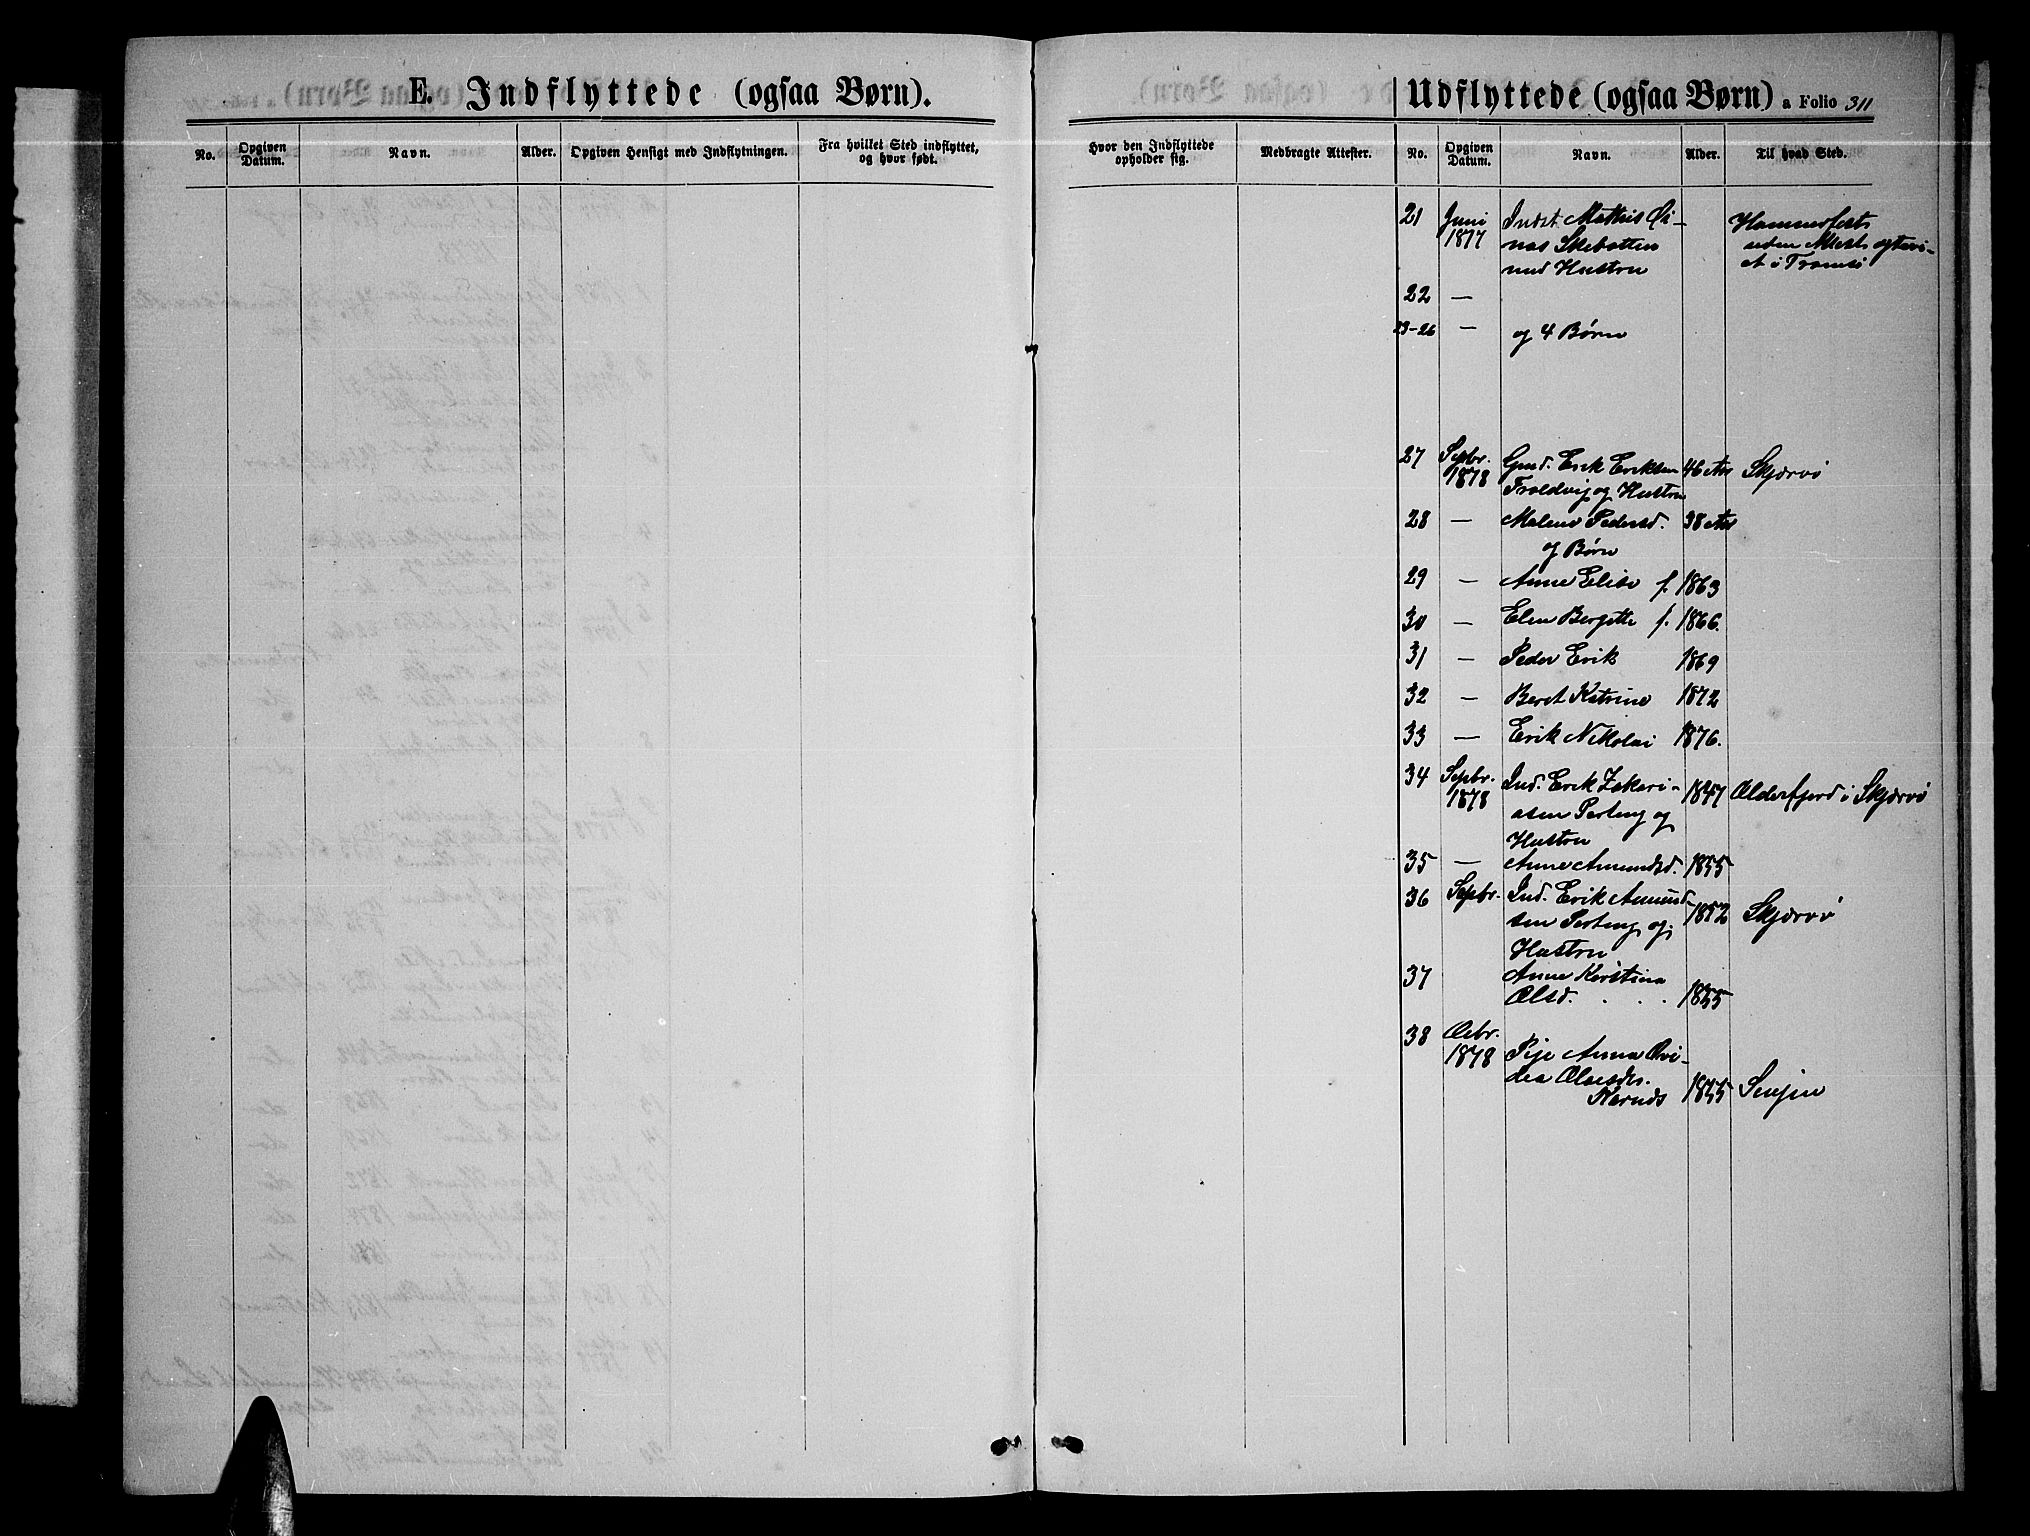 E. Indflyttede (ogsaa Børn).
No. Opgiven Datum. Navn. Alder. Opgiven Hensigt med Indflytningen. Fra hvilket Sted indflyttet, og hvor født.
Udflyttede (ogsaa Børn) a Folio 311
Hvor den Indflyttede opholder sig. Medbragte Attester. No. Opgiven Datum. Navn. Alder. Til hvad Sted.
21 Juni Indst. Mathis Hammerfest
1877 Skibotten
med Hustru i Tromsö
22 —
23-26 — og 4 Børn
27 Sepbr. Gmd. Erik Eriksen 46 Aar Skjærvö
1878 Troldvig og Hustru
28 — Malene Pedersd. 38 Aar
og Børn
29 — Anne Elise f. 1863
30 — Elen Bergitte f. 1866.
31 — Peder Erik 1869
32 — Beret Katrine 1872
33 — Erik Nikolai 1876.
34 Sepbr. Ind. Erik Zakari- 1847 Olderfjord i Skjærvö
1878 asen Perteng og
Hustru
35 — Anne Amundsd. 1855
36 Sepbr. Ind. Erik Amund- 1852 Skjærvö
sen Perteng og
Hustru
37 Anne Kirstina
Olsd. . . . 1855
38 Ocbr.
1878 Pige Anna Ovi-
dea Olsesdr.
Karnes 1855 Senjen